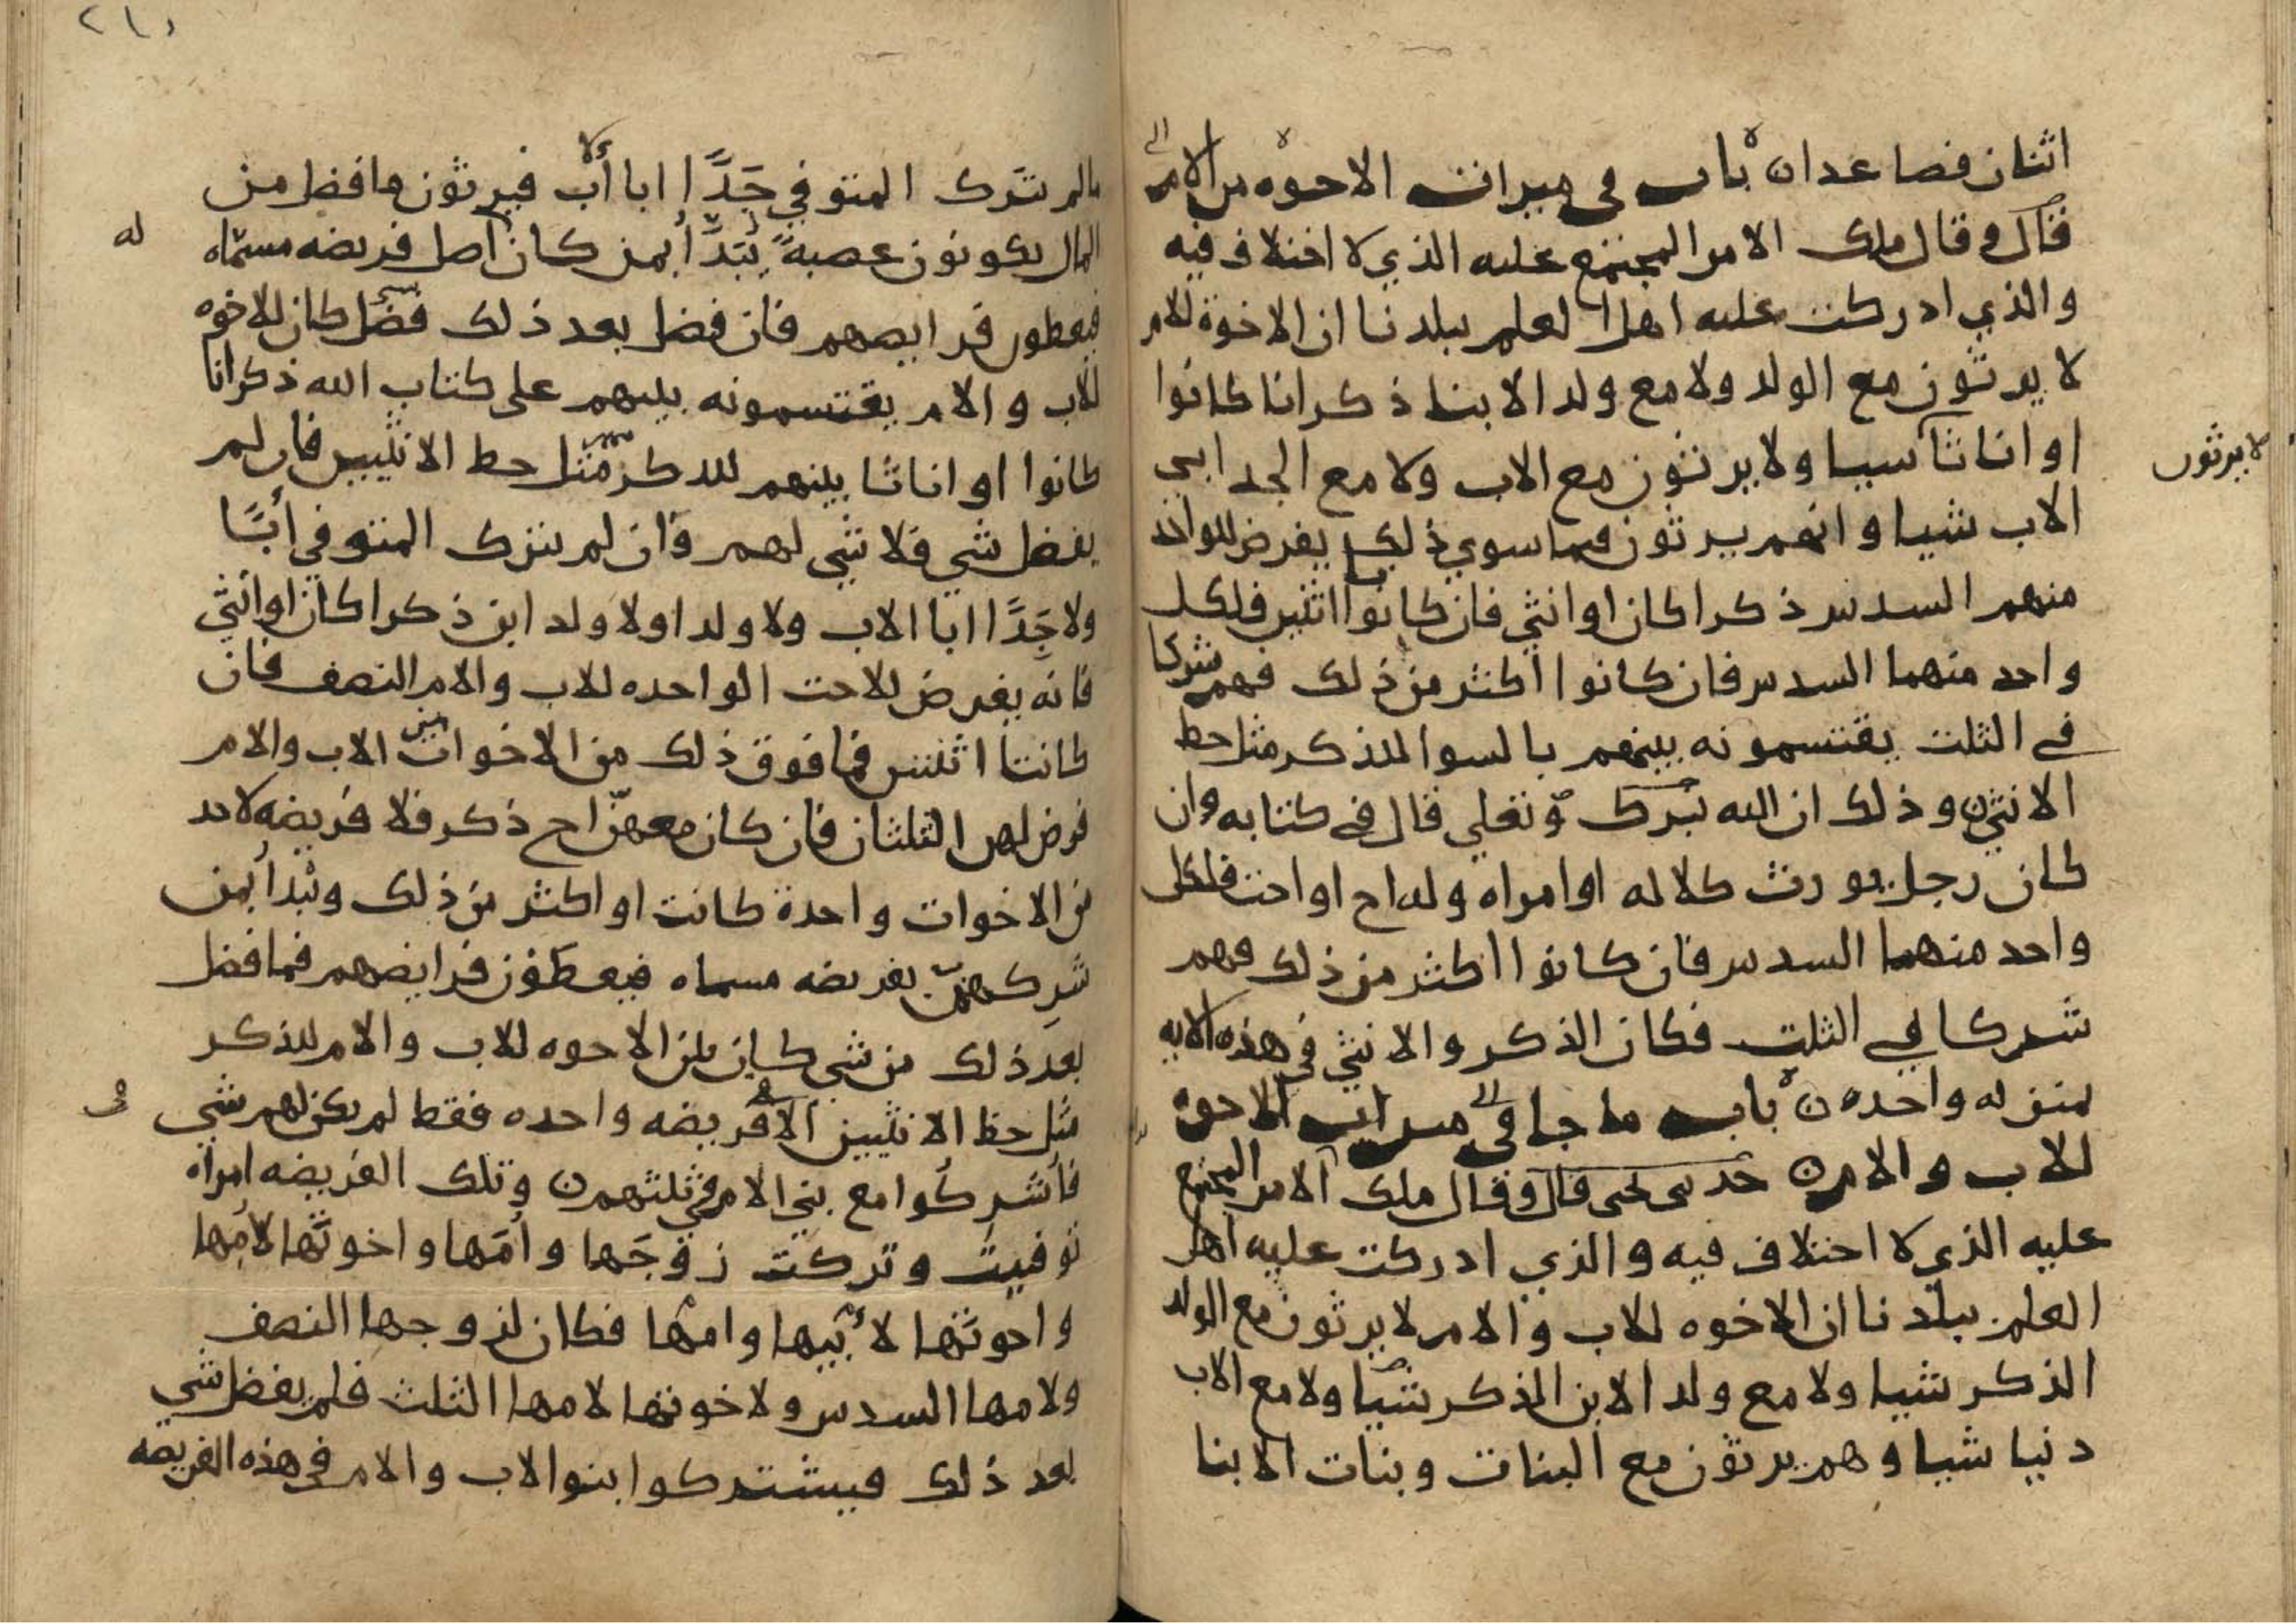 اثنان فصاعدا ن باب في ميراث الاخوه من الام
قال وقال ملك الامر المجتمع عليه الذي لا اختلاف فيه
والذي ادركت عليه اهل العلم ببلدنا ان الاخوة للام
لا يرثون مع الولد ولا مع ولد الابنا ذكرانا كانوا
او اناثا شيا ولا يرثون مع الاب ولا مع الجد ابي
لا يرثون
الاب شيا وانهم يرثون فيما سوي ذلك يفرض للواحد
منهم السدس ذكرا كان او انثي فان كانوا اثنين فلكل
واحد منهما السدس فان كانوا اكثر من ذلك فهم شركا
في الثلث يقتسمونه بينهم بالسوا للذكر مثل حظ
الانثي ن وذلك ان الله تبرك وتعلي قال في كتابه وان
كان رجل يورث كلاله او امراه وله اخ او اخت فلكل
واحد منهما السدس فان كانوا اكثر من ذلك فهم
شركا في الثلث فكان الذكر والانثي في هذه الايه
بمنزله واحده ن باب ما جا في ميراث الاخوه
للاب والام ن حدثني يحيى قال وقال ملك الامر المجتمع
عليه الذي لا اختلاف فيه والذي ادركت عليه اهل
العلم ببلدنا ان الاخوه للاب والام لا يرثون مع الولد
الذكر شيا ولا مع ولد الابن الذكر شيا ولا مع الاب
دنيا شيا وهم يرثون مع البنات وبنات الابنا
٢١٥
مالم يترك المتوفي جَدًّا ابا أب فيرثون ما فضل من
المال يكونون عصبةً يُبَدَّأ بمن كان اصل فريضه مسماه
له
فيعطون فرايضهم فان فضل بعد ذلك فضل كان للاخوه
للاب والام يقتسمونه بينهم على كتاب الله ذكرانا
كانوا او اناثا بينهم للذكر مثل حظ الانثيين فان لم
يفضل شي فلا شي لهم وان لم يترك المتوفي أبًا
ولا جَدًّا ابا الاب ولا ولدا ولا ولد ابن ذكرا كان او انثي
فانه يفرض للاخت الواحده للاب والام النصف فان
كانتا اثنتين فما فوق ذلك من الاخوات من الاب والام
فرض لهن الثلثان فان كان معهنّ اخ ذكر فلا فريضه لاحد
من الاخوات واحدة كانت او اكثر من ذلك ويُبدأ بمن
شرِكهنّ بفريضه مسماه فيعطون فرايضهم فما فضل
بعد ذلك من شي كان بين الاخوه للاب والام للذكر
مثل حظ الانثيين الا في فريضه واحده فقط لم يكن لهم شي
في
فاشركُوا مع بني الام في ثلثهم ن وتلك الفريضه امراه
توفيت وتركت زوجَها وأمّها واخوتَها لأمها
واخوتها لأبيها وامّها فكان لزوجها النصف
ولامها السدس ولاخوتها لامها الثلث فلم يفضل شي
بعد ذلك فيشتركوا بنو الاب والام في هذه الفريضه